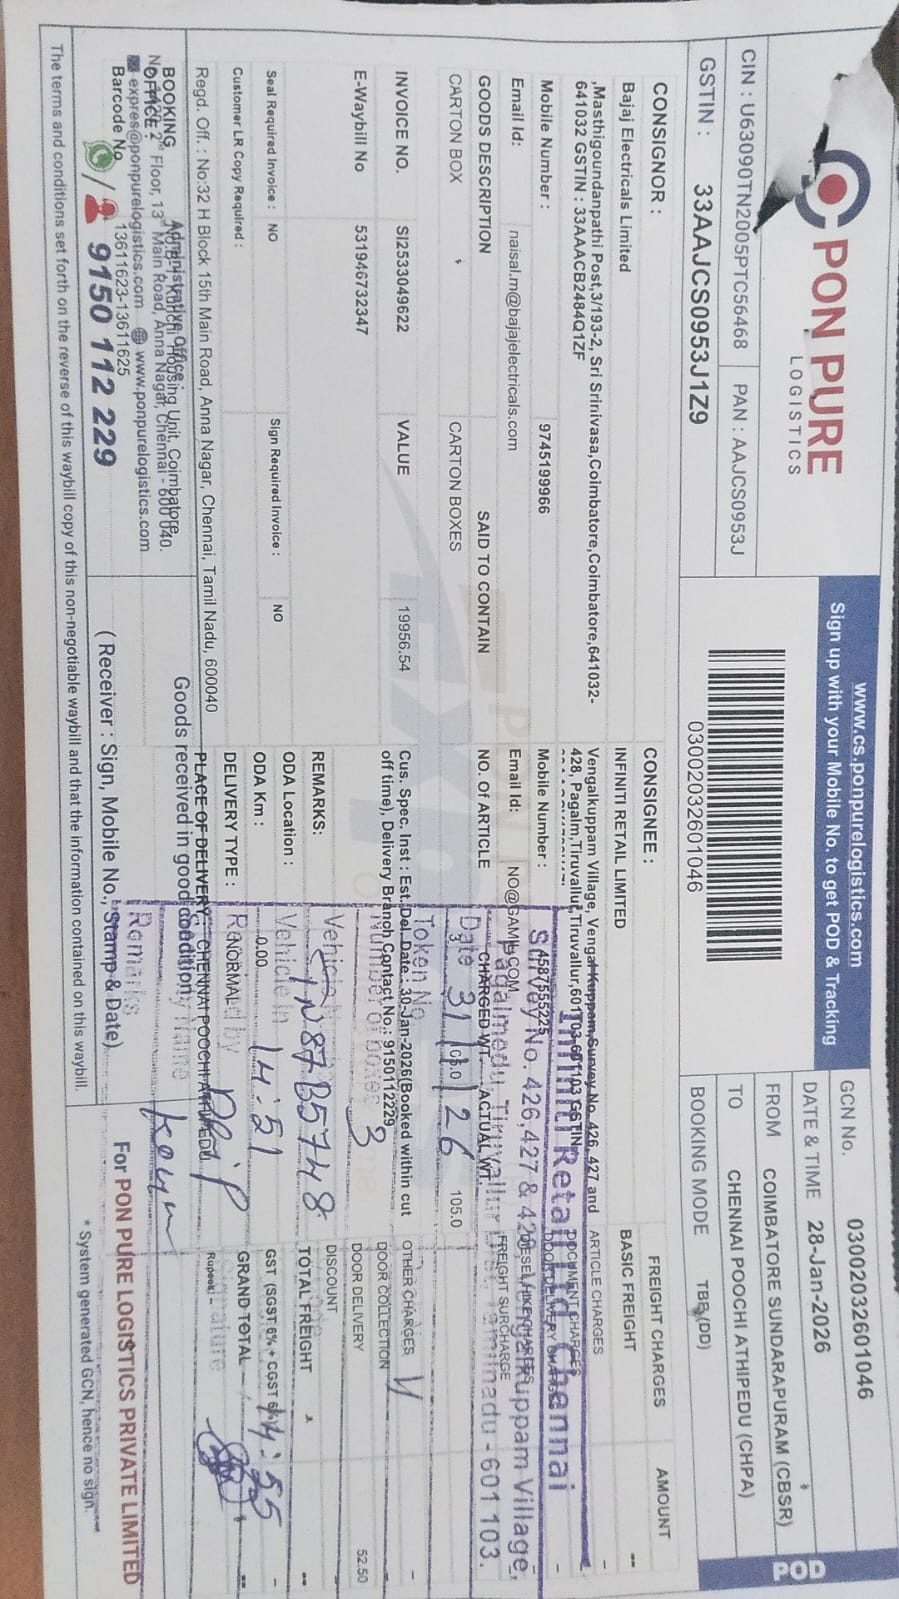 PON PURE
LOGISTICS
CIN : U63090TN2005PTC56468
PAN : AAJCS0953J
GSTIN : 33AAJCS0953J1Z9
www.cs.ponpurelogistics.com
Sign up with your Mobile No. to get POD & Tracking
03002032601046
POD
GCN No. 03002032601046
DATE & TIME 28-Jan-2026
FROM COIMBATORE SUNDARAPURAM (CBSR)
TO CHENNAI POOCHI ATHIPEDU (CHPA)
BOOKING MODE TBB (DD)
CONSIGNOR :
Bajaj Electricals Limited
,Masthigoundanpathi Post,3/193-2, Sri Srinivasa,Coimbatore,Coimbatore,641032-
641032 GSTIN : 33AAACB2484Q1ZF
Mobile Number : 9745199966
Email Id: naisal.m@bajajelectricals.com
CONSIGNEE :
INFINITI RETAIL LIMITED
Vengalkuppam Village, Vengal Kuppam,Survey No. 426, 427 and
428, Pagalm,Tiruvallur,Tiruvallur,601103-601103 GSTIN
Mobile Number : 4587555225
Email Id: NO@GAMIL.COM
FREIGHT CHARGES AMOUNT
BASIC FREIGHT --
ARTICLE CHARGES -
DOCUMENT CHARGES
DOOR DELIVERY
FREIGHT SURCHARGE
OTHER CHARGES -
DOOR COLLECTION -
DOOR DELIVERY 52.50
DISCOUNT
TOTAL FREIGHT --
GST (SGST 6% + CGST 6%) -
GRAND TOTAL --
Rupees: -
GOODS DESCRIPTION SAID TO CONTAIN NO. OF ARTICLE CHARGED WT. ACTUAL WT.
CARTON BOX CARTON BOXES 3 105.0
INVOICE NO. SI2533049622 VALUE 19956.54
E-Waybill No 531946732347
Cus. Spec. Inst : Est.Del. Date : 30-Jan-2026(Booked within cut
off time), Delivery Branch Contact No.: 9150112229
REMARKS:
Seal Required Invoice : NO
Sign Required Invoice : NO
ODA Location :
Customer LR Copy Required :
ODA Km : 0.00
DELIVERY TYPE : NORMAL
PLACE OF DELIVERY: CHENNAI POOCHI ATHIPEDU
Infiniti Retail Ltd Chennai
Survey No. 426,427 & 428, Vengalkuppam Village,
Pagalmedu, Tiruvallur Dist, Tamilnadu - 601 103.
Date 31/1/26
Token No
Number of boxes 3
Vehicle N
TN87B5748
Vehicle In 14:51
14:55
Received by
Name
Signature
Remarks
Regd. Off. : No:32 H Block 15th Main Road, Anna Nagar, Chennai, Tamil Nadu, 600040
BOOKING
OFFICE :
Administrative Office:
2nd Floor, 13th Main Road, Anna Nagar, Chennai - 600 040.
Housing Unit, Coimbatore
expres@ponpurelogistics.com www.ponpurelogistics.com
Barcode No 13611623-13611625
/ 9150 112 229
Goods received in good condition
( Receiver : Sign, Mobile No., Stamp & Date)
For PON PURE LOGISTICS PRIVATE LIMITED
The terms and conditions set forth on the reverse of this waybill copy of this non-negotiable waybill and that the information contained on this waybill.
* System generated GCN, hence no sign.